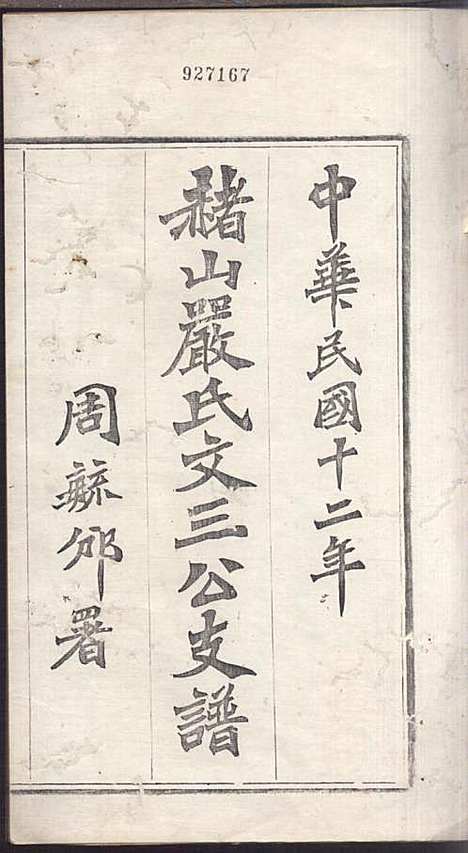 927167
中華民國十二年
赭山嚴氏文三公支譜
周毓邠署